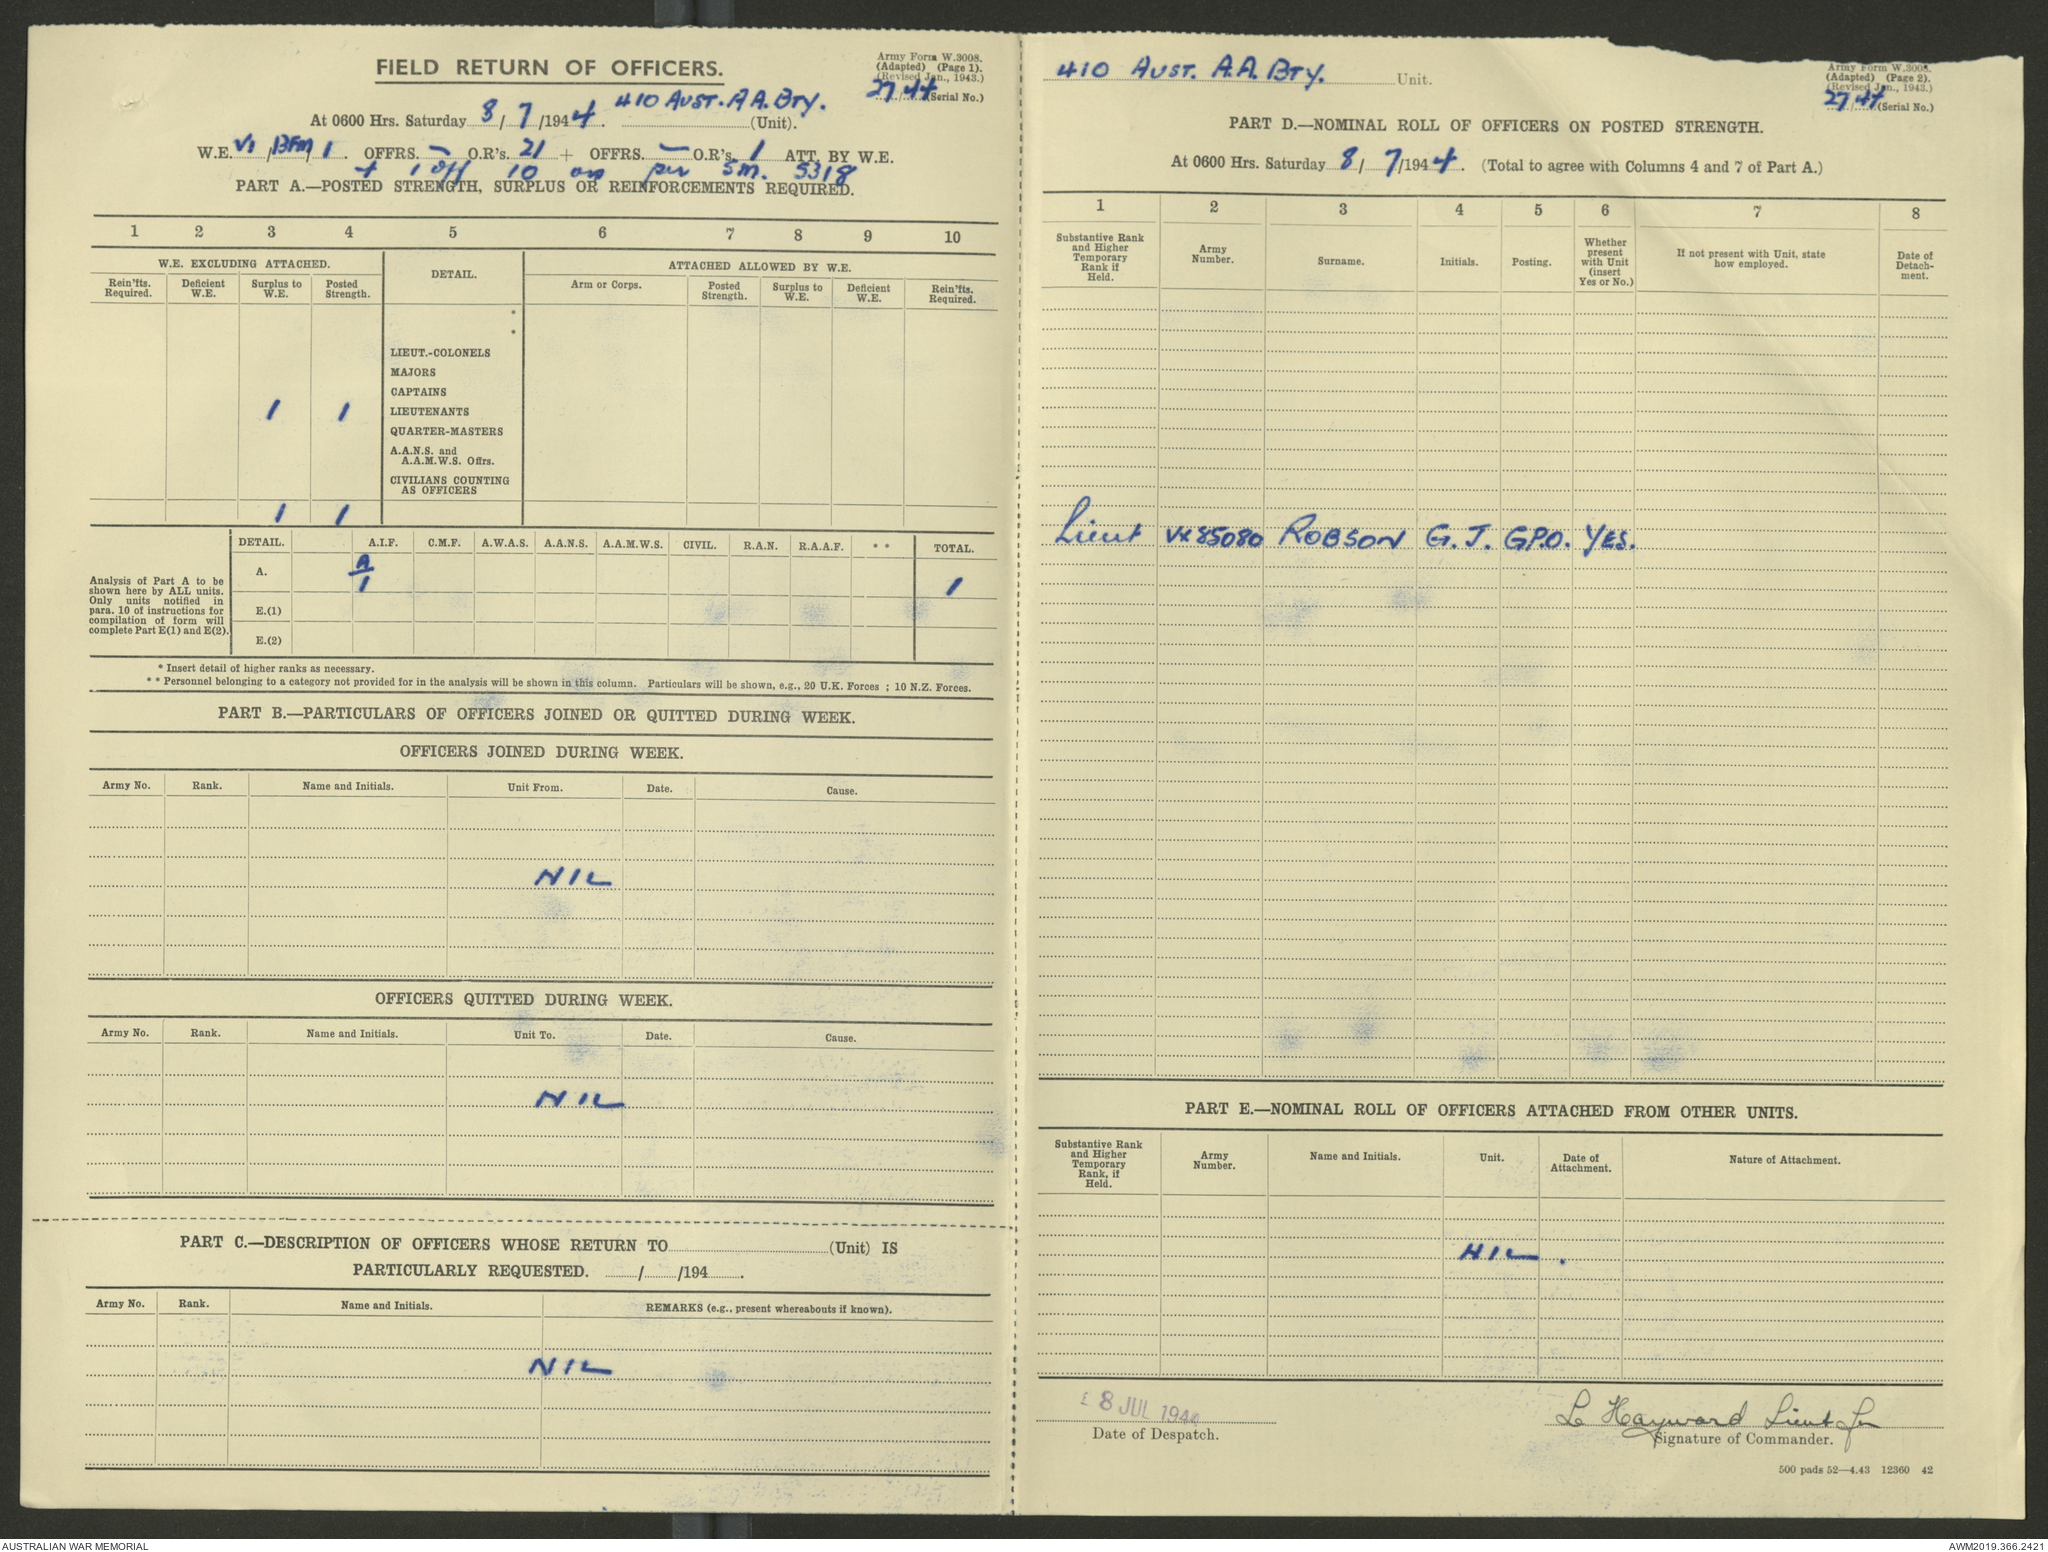 FIELD RETURN OF OFFICERS.
Army Form W.3008.
(Adapted) (Page 1).
(Revised Jan., 1943.)
27/44 (Serial No.)
At 0600 Hrs. Saturday 8/7/1944. 410 AUST. A A. BTY. (Unit).
W.E. VI/BFM/1. OFFRS. — O.R's. 21 + OFFRS. — O.R's. 1 ATT. BY W.E.
+ 1 off 10 ors per SM. 5318
PART A.—POSTED STRENGTH, SURPLUS OR REINFORCEMENTS REQUIRED.
1 2 3 4 5 6 7 8 9 10
W.E. EXCLUDING ATTACHED. DETAIL. ATTACHED ALLOWED BY W.E.
Rein'fts. Required. Deficient W.E. Surplus to W.E. Posted Strength. Arm or Corps. Posted Strength. Surplus to W.E. Deficient W.E. Rein'fts. Required.
*
*
LIEUT.-COLONELS
MAJORS
CAPTAINS
1 1 LIEUTENANTS
QUARTER-MASTERS
A.A.N.S. and
A.A.M.W.S. Offrs.
CIVILIANS COUNTING
AS OFFICERS
1 1
DETAIL. A.I.F. C.M.F. A.W.A.S. A.A.N.S. A.A.M.W.S. CIVIL. R.A.N. R.A.A.F. * * TOTAL.
Analysis of Part A to be
shown here by ALL units.
Only units notified in
para. 10 of instructions for
compilation of form will
complete Part E(1) and E(2).
A. A/1 1
E.(1)
E.(2)
* Insert detail of higher ranks as necessary.
* * Personnel belonging to a category not provided for in the analysis will be shown in this column. Particulars will be shown, e.g., 20 U.K. Forces ; 10 N.Z. Forces.
PART B.—PARTICULARS OF OFFICERS JOINED OR QUITTED DURING WEEK.
OFFICERS JOINED DURING WEEK.
Army No. Rank. Name and Initials. Unit From. Date. Cause.
NIL
OFFICERS QUITTED DURING WEEK.
Army No. Rank. Name and Initials. Unit To. Date. Cause.
NIL
PART C.—DESCRIPTION OF OFFICERS WHOSE RETURN TO (Unit) IS
PARTICULARLY REQUESTED. / /194 .
Army No. Rank. Name and Initials. REMARKS (e.g., present whereabouts if known).
NIL
410 AUST. A.A. BTY. Unit.
Army Form W.3008.
(Adapted) (Page 2).
(Revised Jan., 1943.)
27/44 (Serial No.)
PART D.—NOMINAL ROLL OF OFFICERS ON POSTED STRENGTH.
At 0600 Hrs. Saturday 8/7/1944. (Total to agree with Columns 4 and 7 of Part A.)
1 2 3 4 5 6 7 8
Substantive Rank and Higher Temporary Rank if Held. Army Number. Surname. Initials. Posting. Whether present with Unit (insert Yes or No.) If not present with Unit, state how employed. Date of Detachment.
Lieut VX85080 ROBSON G. J. G.P.O. YES.
PART E.—NOMINAL ROLL OF OFFICERS ATTACHED FROM OTHER UNITS.
Substantive Rank and Higher Temporary Rank, if Held. Army Number. Name and Initials. Unit. Date of Attachment. Nature of Attachment.
NIL.
8 JUL 1944
Date of Despatch.
L Hayward Lieut for
Signature of Commander.
500 pads 52—4.43 12360 42
AUSTRALIAN WAR MEMORIAL
AWM2019.366.2421